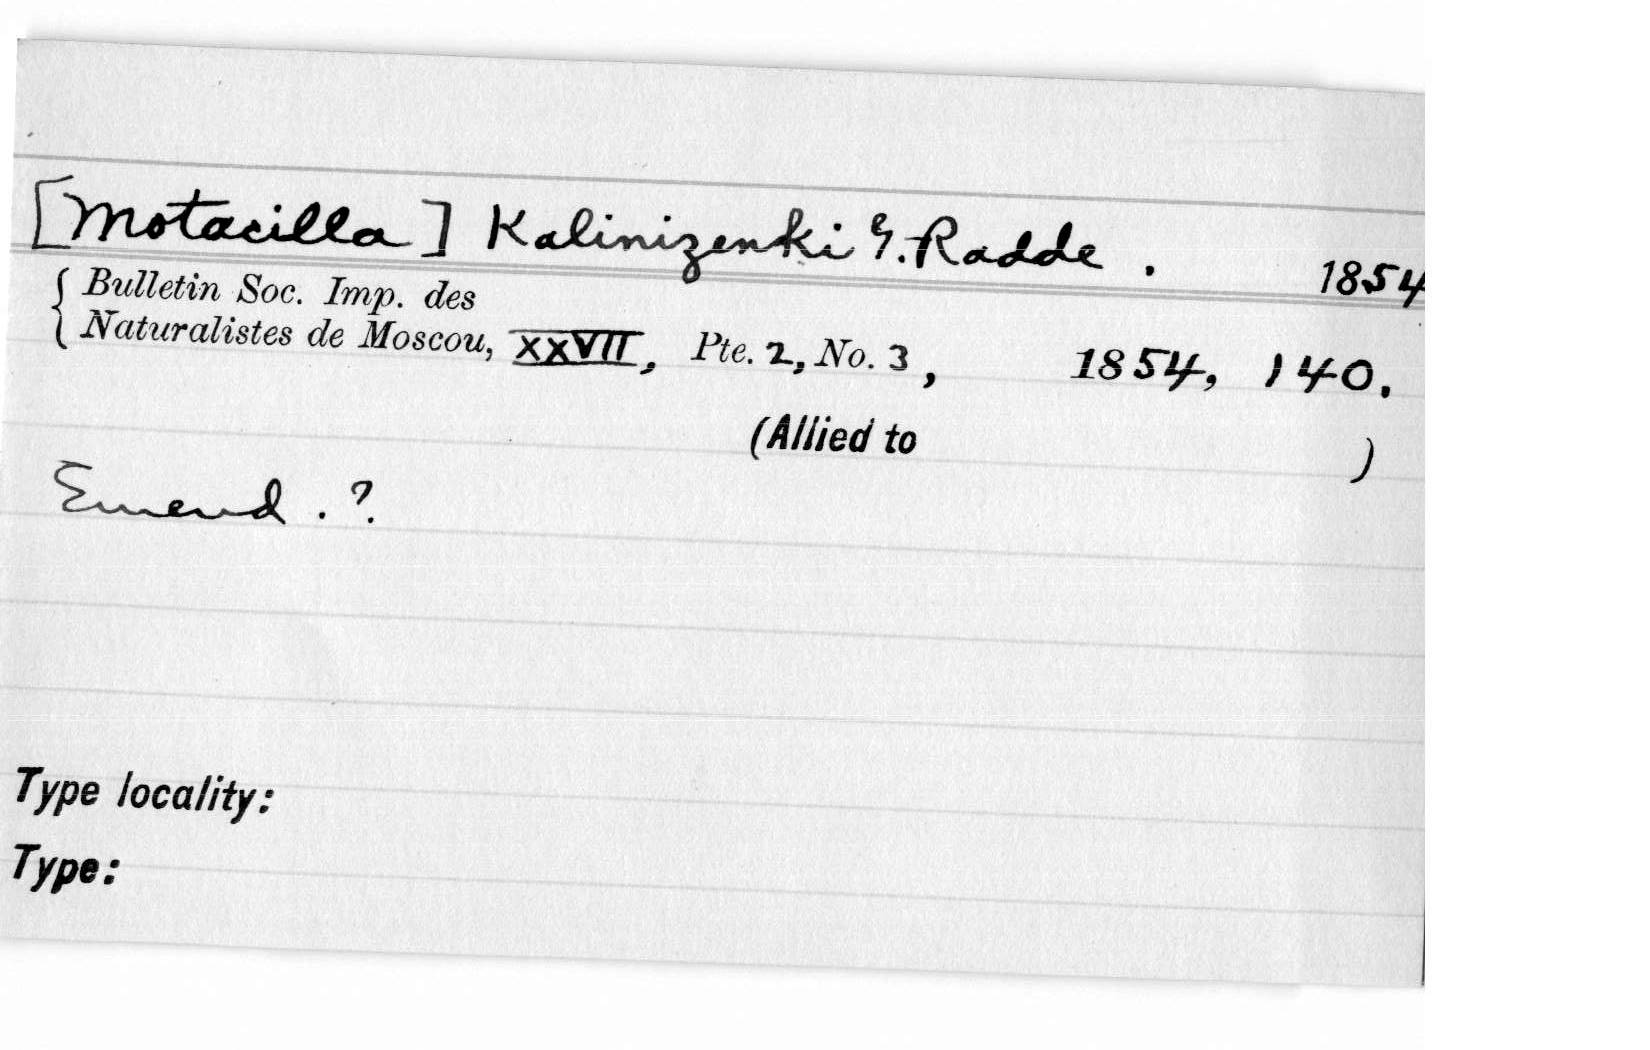 [Motacilla] Kalinizenki G. Radde. 1854
Bulletin Soc. Imp. des
Naturalistes de Moscou, XXVII, Pte. 2, No. 3, 1854, 140.
(Allied to )
Emend. ?
Type locality:
Type: